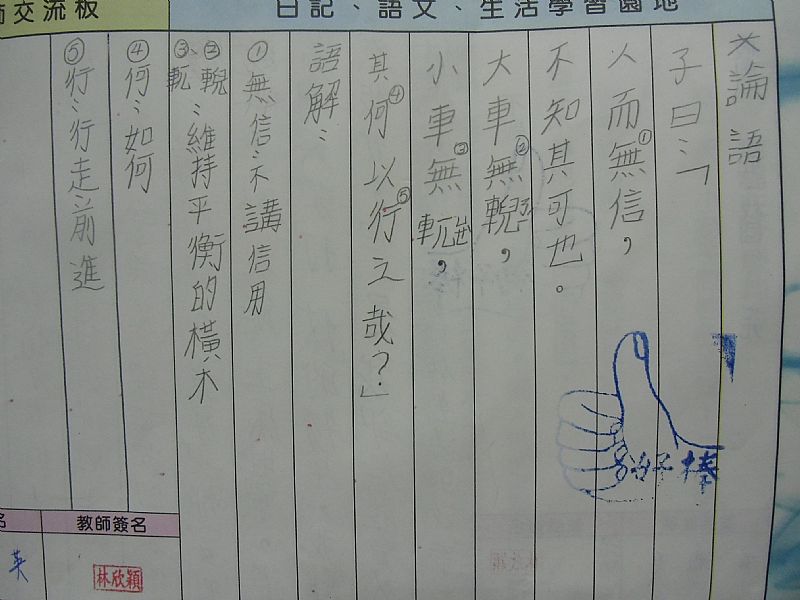 日記、語文、生活學習園地
交流板
論語
子曰：「
人而無①信，
不知其可也。
大車無②輗，
小車無③軏，
其何④以行⑤之哉？」
語解：
①無信：不講信用
②輗、③軏：維持平衡的橫木
④何：如何
⑤行：行走、前進
好棒
教師簽名
名
林欣穎
英